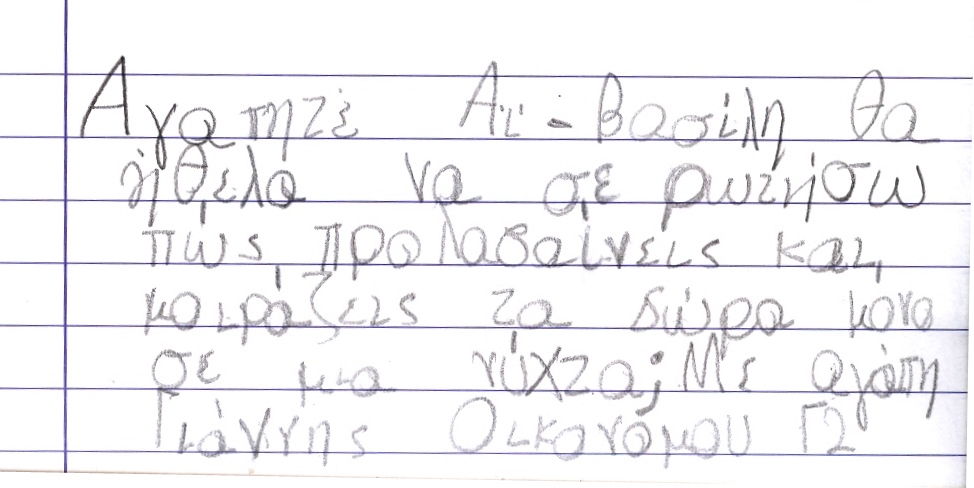 Αγαπητέ Αϊ-Βασίλη θα
ήθελα να σε ρωτήσω
πώς προλαβαίνεις και
μοιράζεις τα δώρα μόνο
σε μια νύχτα; Με αγάπη
Γιάννης Οικονόμου Γ2